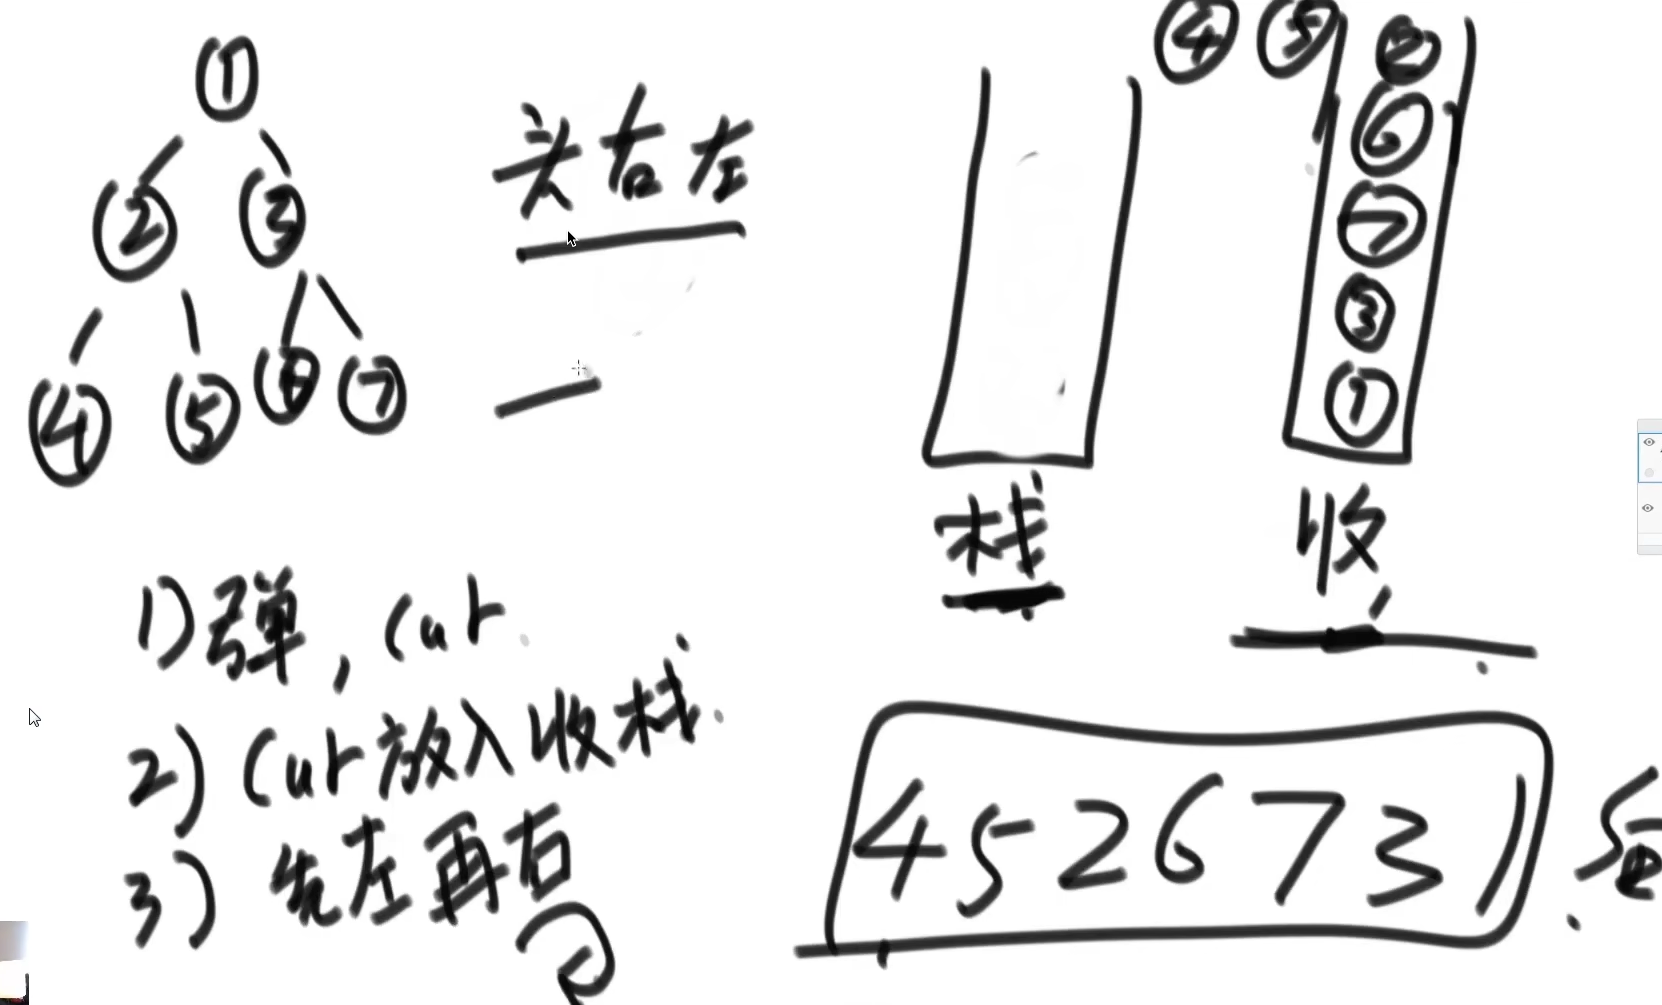 ①
② ③
④ ⑤ ⑥ ⑦
头右左
④ ⑤ ②
⑥
⑦
③
①
栈
收
1) 弹, cur
2) cur 放入收栈
3) 先左再右
4 5 2 6 7 3 1